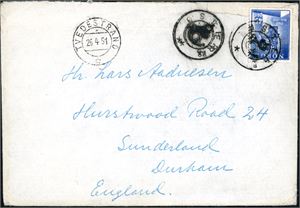 TVEDESTRAND
25 4 51
Hr. Lars Andreesen
Hurstwood Road 24
Sunderland
Durham
England.